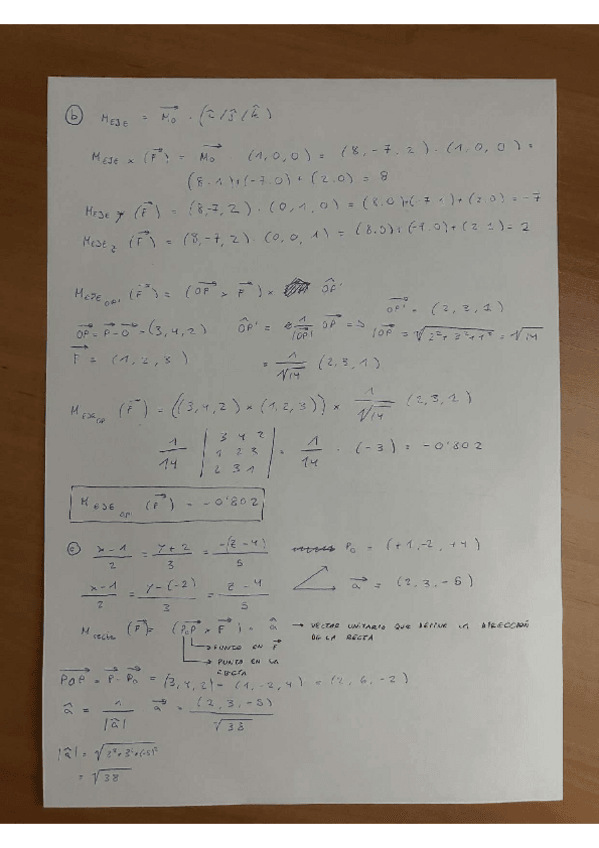 b M_EJE = M₀ · (î/ĵ/k̂)
M_EJE x (F) = M₀ · (1,0,0) = (8,-7,2) · (1,0,0) =
(8·1)+(-7·0)+(2·0) = 8
M_EJE y (F) = (8,-7,2) · (0,1,0) = (8·0)+(-7·1)+(2·0) = -7
M_EJE z (F) = (8,-7,2) · (0,0,1) = (8·0)+(-7·0)+(2·1) = 2
M_EJE OP' (F) = (OP × F) × ÔP'
OP = P - O = (3,4,2) ÔP' = 1/|OP| OP => OP' = (2,3,1) |OP = √2²+3²+1² = √14
F = (1,2,3) = 1/√14 (2,3,1)
M_EJE OP (F) = ((3,4,2) × (1,2,3)) × 1/√14 (2,3,1)
1/14 | 3 4 2 | 1 2 3 | 2 3 1 | = 1/14 · (-3) = -0'802
M_EJE OP (F) = -0'802
c x-1/2 = y+2/3 = -(z-4)/5 P₀ = (+1,-2,+4)
x-1/2 = y-(-2)/3 = z-4/5 a = (2,3,-5)
M_RECTA (F) = (P₀P × F) · â → VECTOR UNITARIO QUE DEFINE LA DIRECCIÓN
DE LA RECTA
→ PUNTO EN F
→ PUNTO EN LA
RECTA
P₀P = P - P₀ = (3,4,2) - (1,-2,4) = (2,6,-2)
â = 1/|â| a = (2,3,-5)/√38
|â| = √2²+3²+(-5)²
= √38